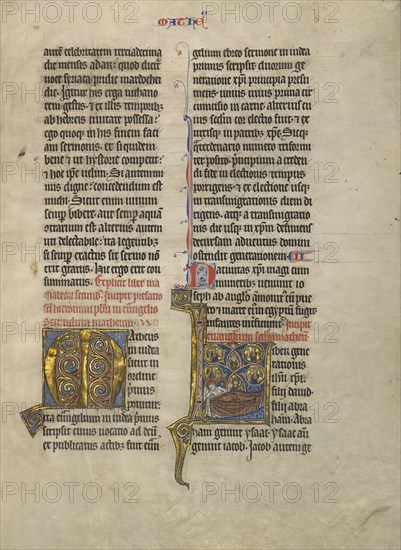 MATHEus
autem celebritatem tertiadecima
die mensis adar: quod dicitur
voce syriaca: pridie mardochei
diei. Igitur his erga nichano
rem gestis: et ex illis temporibus
ab hebreis civitate possessa:
ego quoque in his finem faci
am sermonis. et siquidem
bene et ut hystorie competit:
et hoc ipse velim. Si autem mi
nus digne: concedendum est
michi. Sicut enim vinum
semper bibere aut semper aquam
contrarium est alternis autem
uti delectabile: ita legentibus
si semper exactus sit sermo non
erit gratus. Hic ergo erit con
summatus. Explicit liber ma
chabeorum secundus. Incipit prefatio
sancti ieronimi presbiteri in evangelio
secundum matheum.
Matheus
in iudea
sicut in
ordine
primus
ponitur:
ita evangelium in iudea primus
scripsit cuius vocatio ad deum
ex publicanis actibus fuit. cum
gelium ebreo sermone in iudea
primus scripsit duorum ge
neratione xpisti principia presu
mens: unius cuius prima cir
cumcisio in carne. alterius cu
ius secundum cor electio fuit et ex
utrisque in patribus xpistus. Sicque
quaterdenario numero triformi
ter posito. principium a creden
di fide in electionis tempus
porrigens: et ex electione usque
in transmigrationis diem di
rigens. atque a transmigrationis
die usque in xpistum definiens
decursam adventus domini
ostendit generationem.
Nativitas xpisti magi cum
muneribus veniunt io
seph ab angelo
infantes interficiunt. Incipit
evangelium secundum matheum.
Liber gene
rationis
ihesu xpisti
filii david
filii abra
ham. Abra
ham genuit ysaac. ysaac autem
genuit iacob. Iacob autem ge
PHOTO12